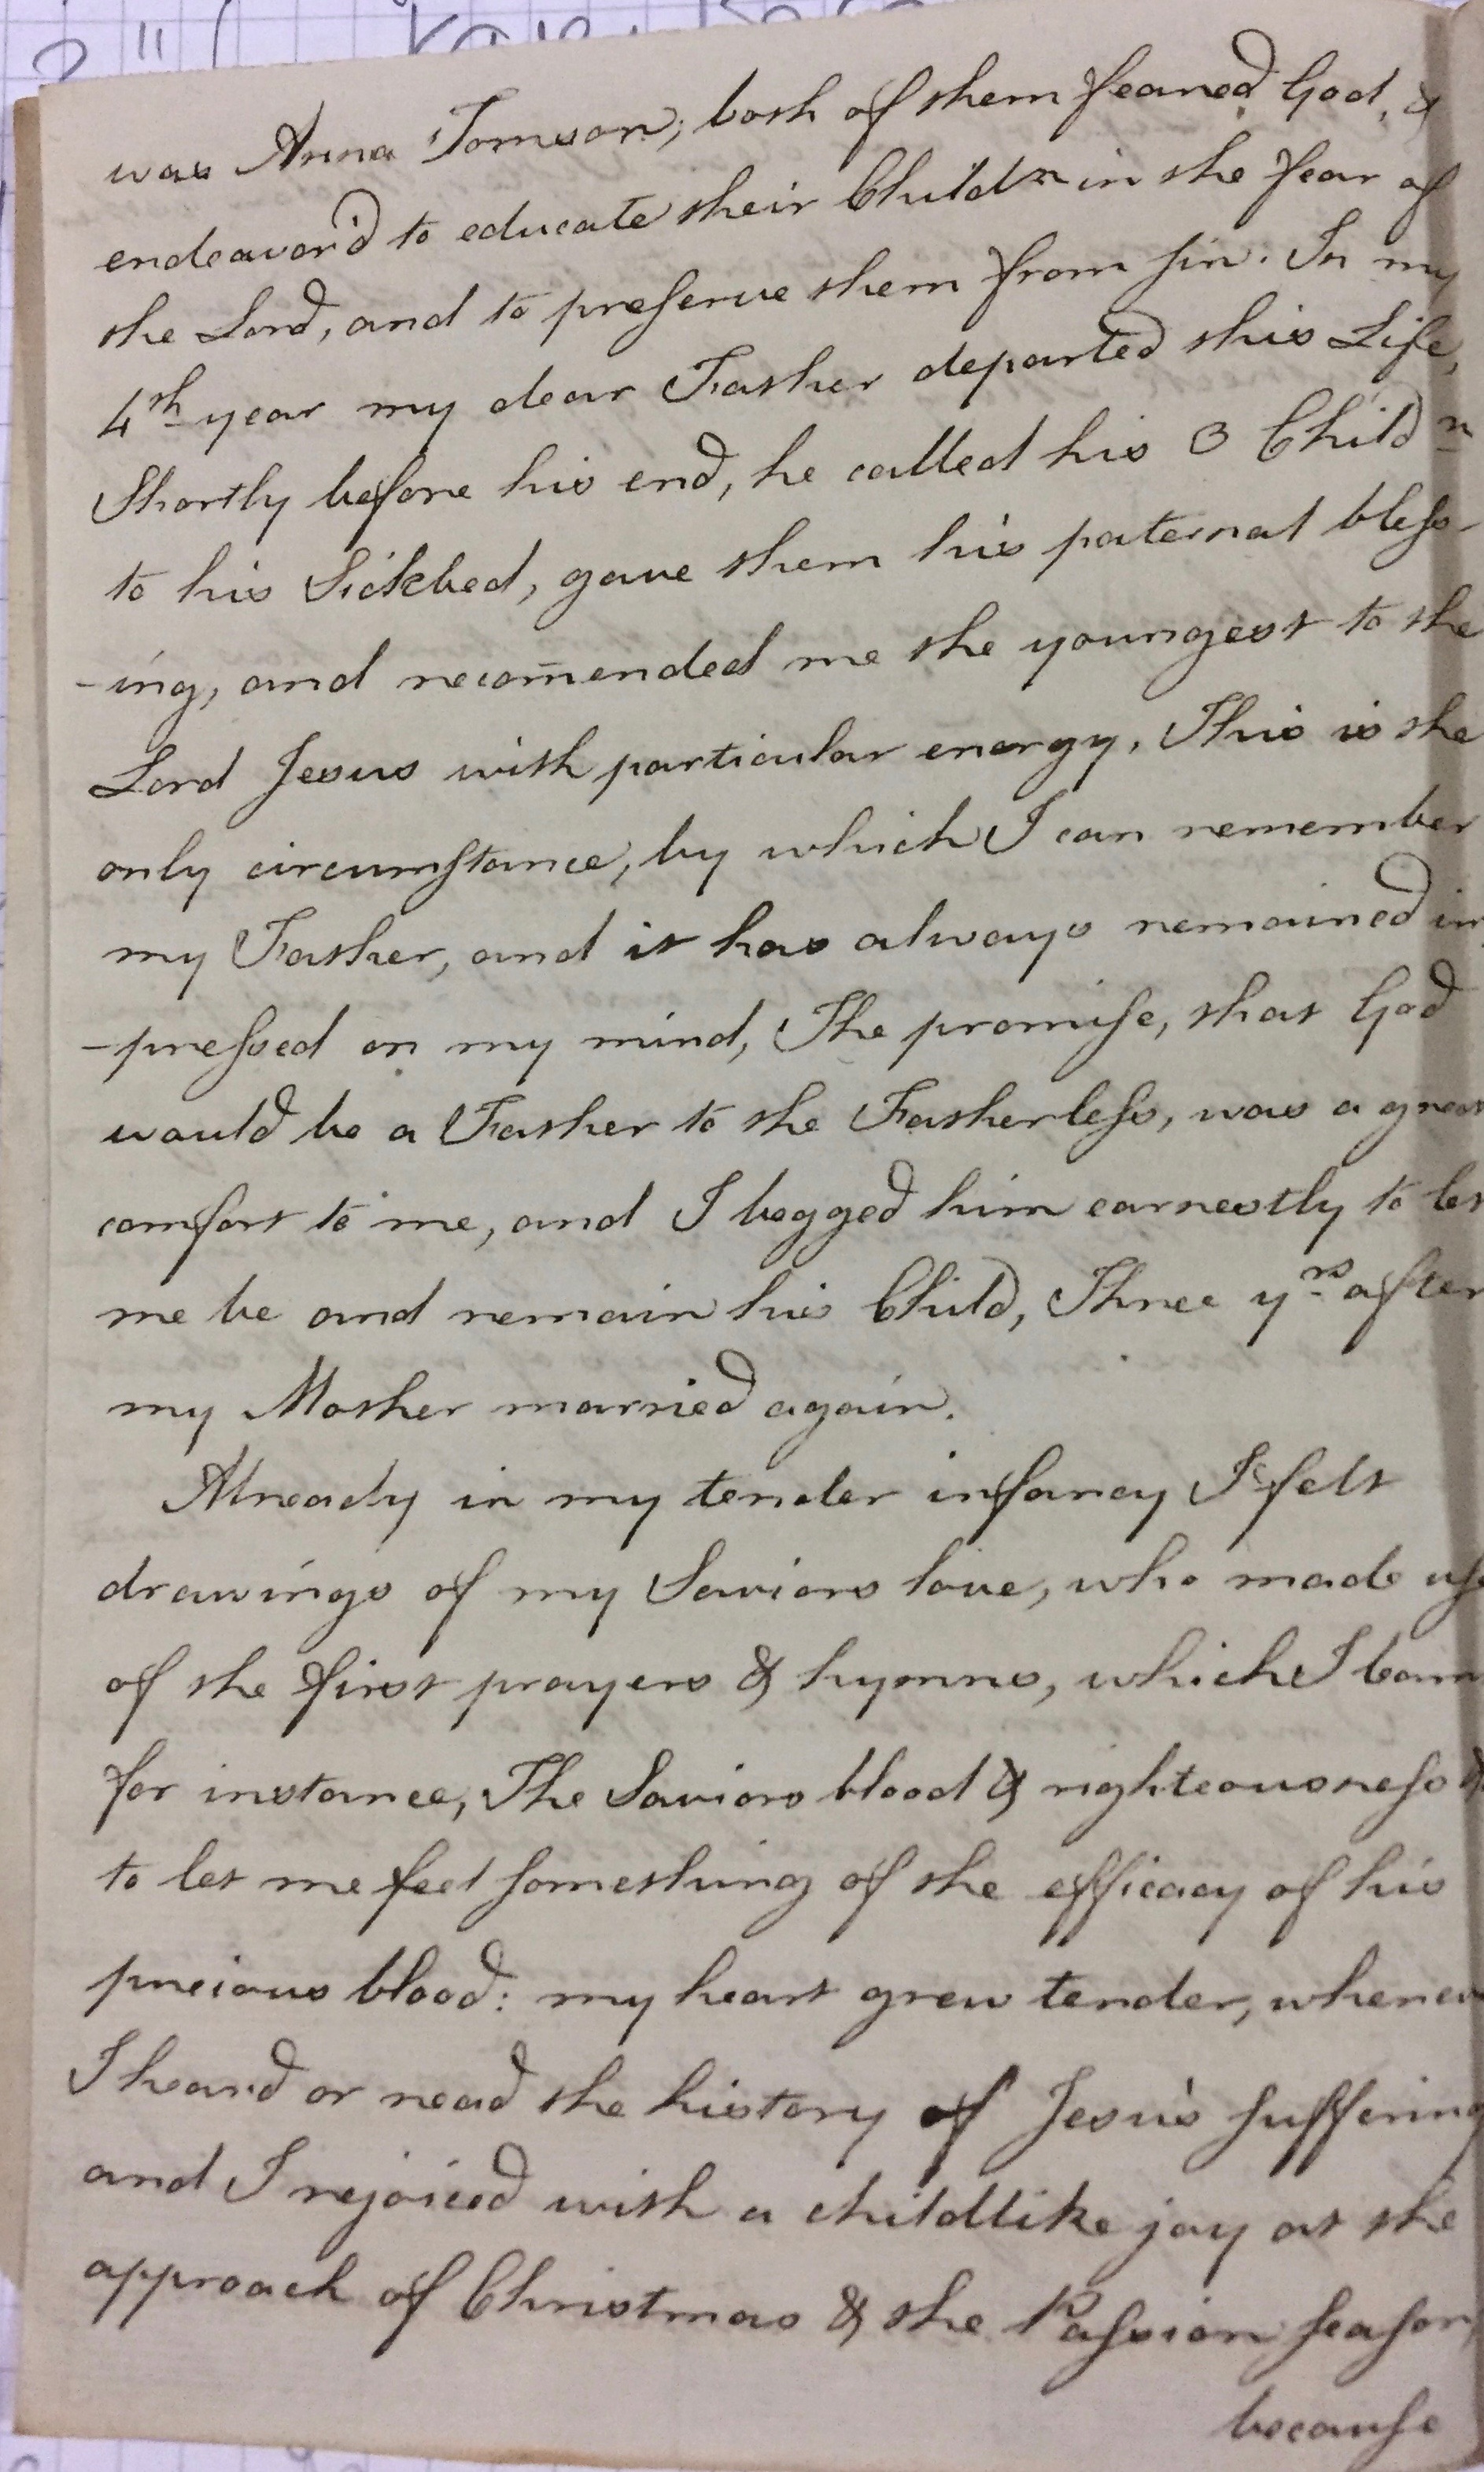 was Anna Tomson; both of them feared God, &
endeavor'd to educate their Childn in the fear of
the Lord, and to preserve them from sin. In my
4th year my dear Father departed this Life,
Shortly before his end, he called his 3 Childn
to his Sickbed, gave them his paternal bless-
-ing, and recom̄ended me the youngest to the
Lord Jesus with particular energy, This is the
only circumstance, by which I can remember
my Father, and it has always remained im
-pressed on my mind, The promise, that God
would be a Father to the Fatherless, was a great
comfort to me, and I begged him earnestly to let
me be and remain his Child, Three yrs after
my Mother married again.
Already in my tender infancy I felt
drawings of my Saviors love, who made use
of the first prayers & hymns, which I learn
for instance, The Saviors blood & righteousness &
to let me feel something of the efficacy of his
precious blood: my heart grew tender, whenev
I heard or read the history of Jesu's suffering
and I rejoiced with a childlike joy at the
approach of Christmas & the Passion season,
because